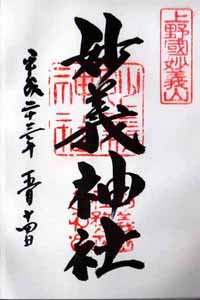 上野國妙義山
妙義神社
平成二十三年 五月十四日